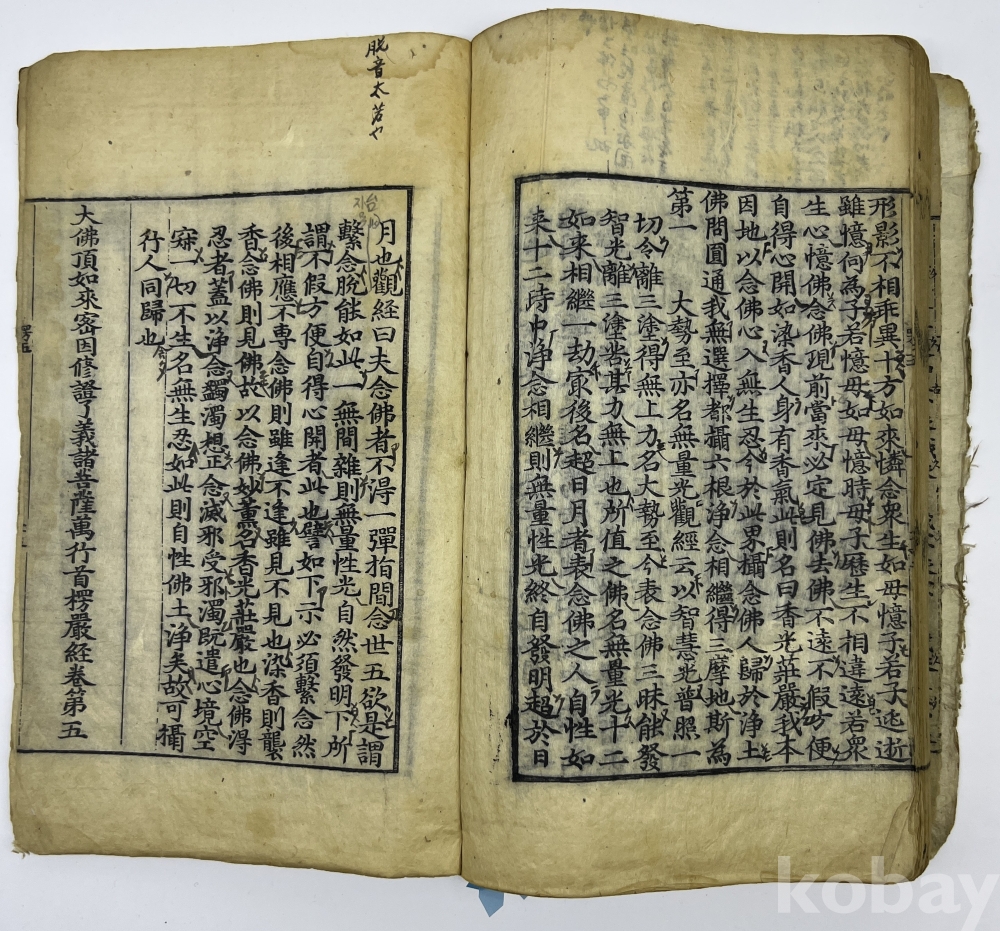 形影不相乖異十方如來憐念衆生如母憶子若子逃逝
雖憶何爲子若憶母如母憶時母子歷生不相違遠若衆
生心憶佛念佛現前當來必定見佛去佛不遠不假方便
自得心開如染香人身有香氣此則名曰香光莊嚴我本
因地以念佛心入無生忍今於此界攝念佛人歸於淨土
佛問圓通我無選擇都攝六根淨念相繼得三摩地斯爲
第一　大勢至亦名無量光觀經云以智慧光普照一
切令離三塗得無上力名大勢至今表念佛三昧能發
智光離三塗苦其力無上也所值之佛名無量光十二
如來相繼一劫㝡後名超日月者表念佛之人自性如
来十二時中淨念相繼則無量性光終自發明超於日
脫音太
月也觀經曰夫念佛者不得一彈指間念世五欲是謂
繫念脫能如此一無間雜則無量性光自然發明下所
謂不假方便自得心開者此也譬如下示必須繫念然
後相應不專念佛則雖逢不逢雖見不見也染香則襲
香念佛則見佛故以念佛妙薰名香光莊嚴也念佛得
忍者蓋以淨念蠲濁想正念滅邪受邪濁旣遣心境空
寂一切不生名無生忍如此則自性佛土淨矣故可攝
行人同歸也
大佛頂如來密因修證了義諸菩薩萬行首楞嚴經卷第五
kobay